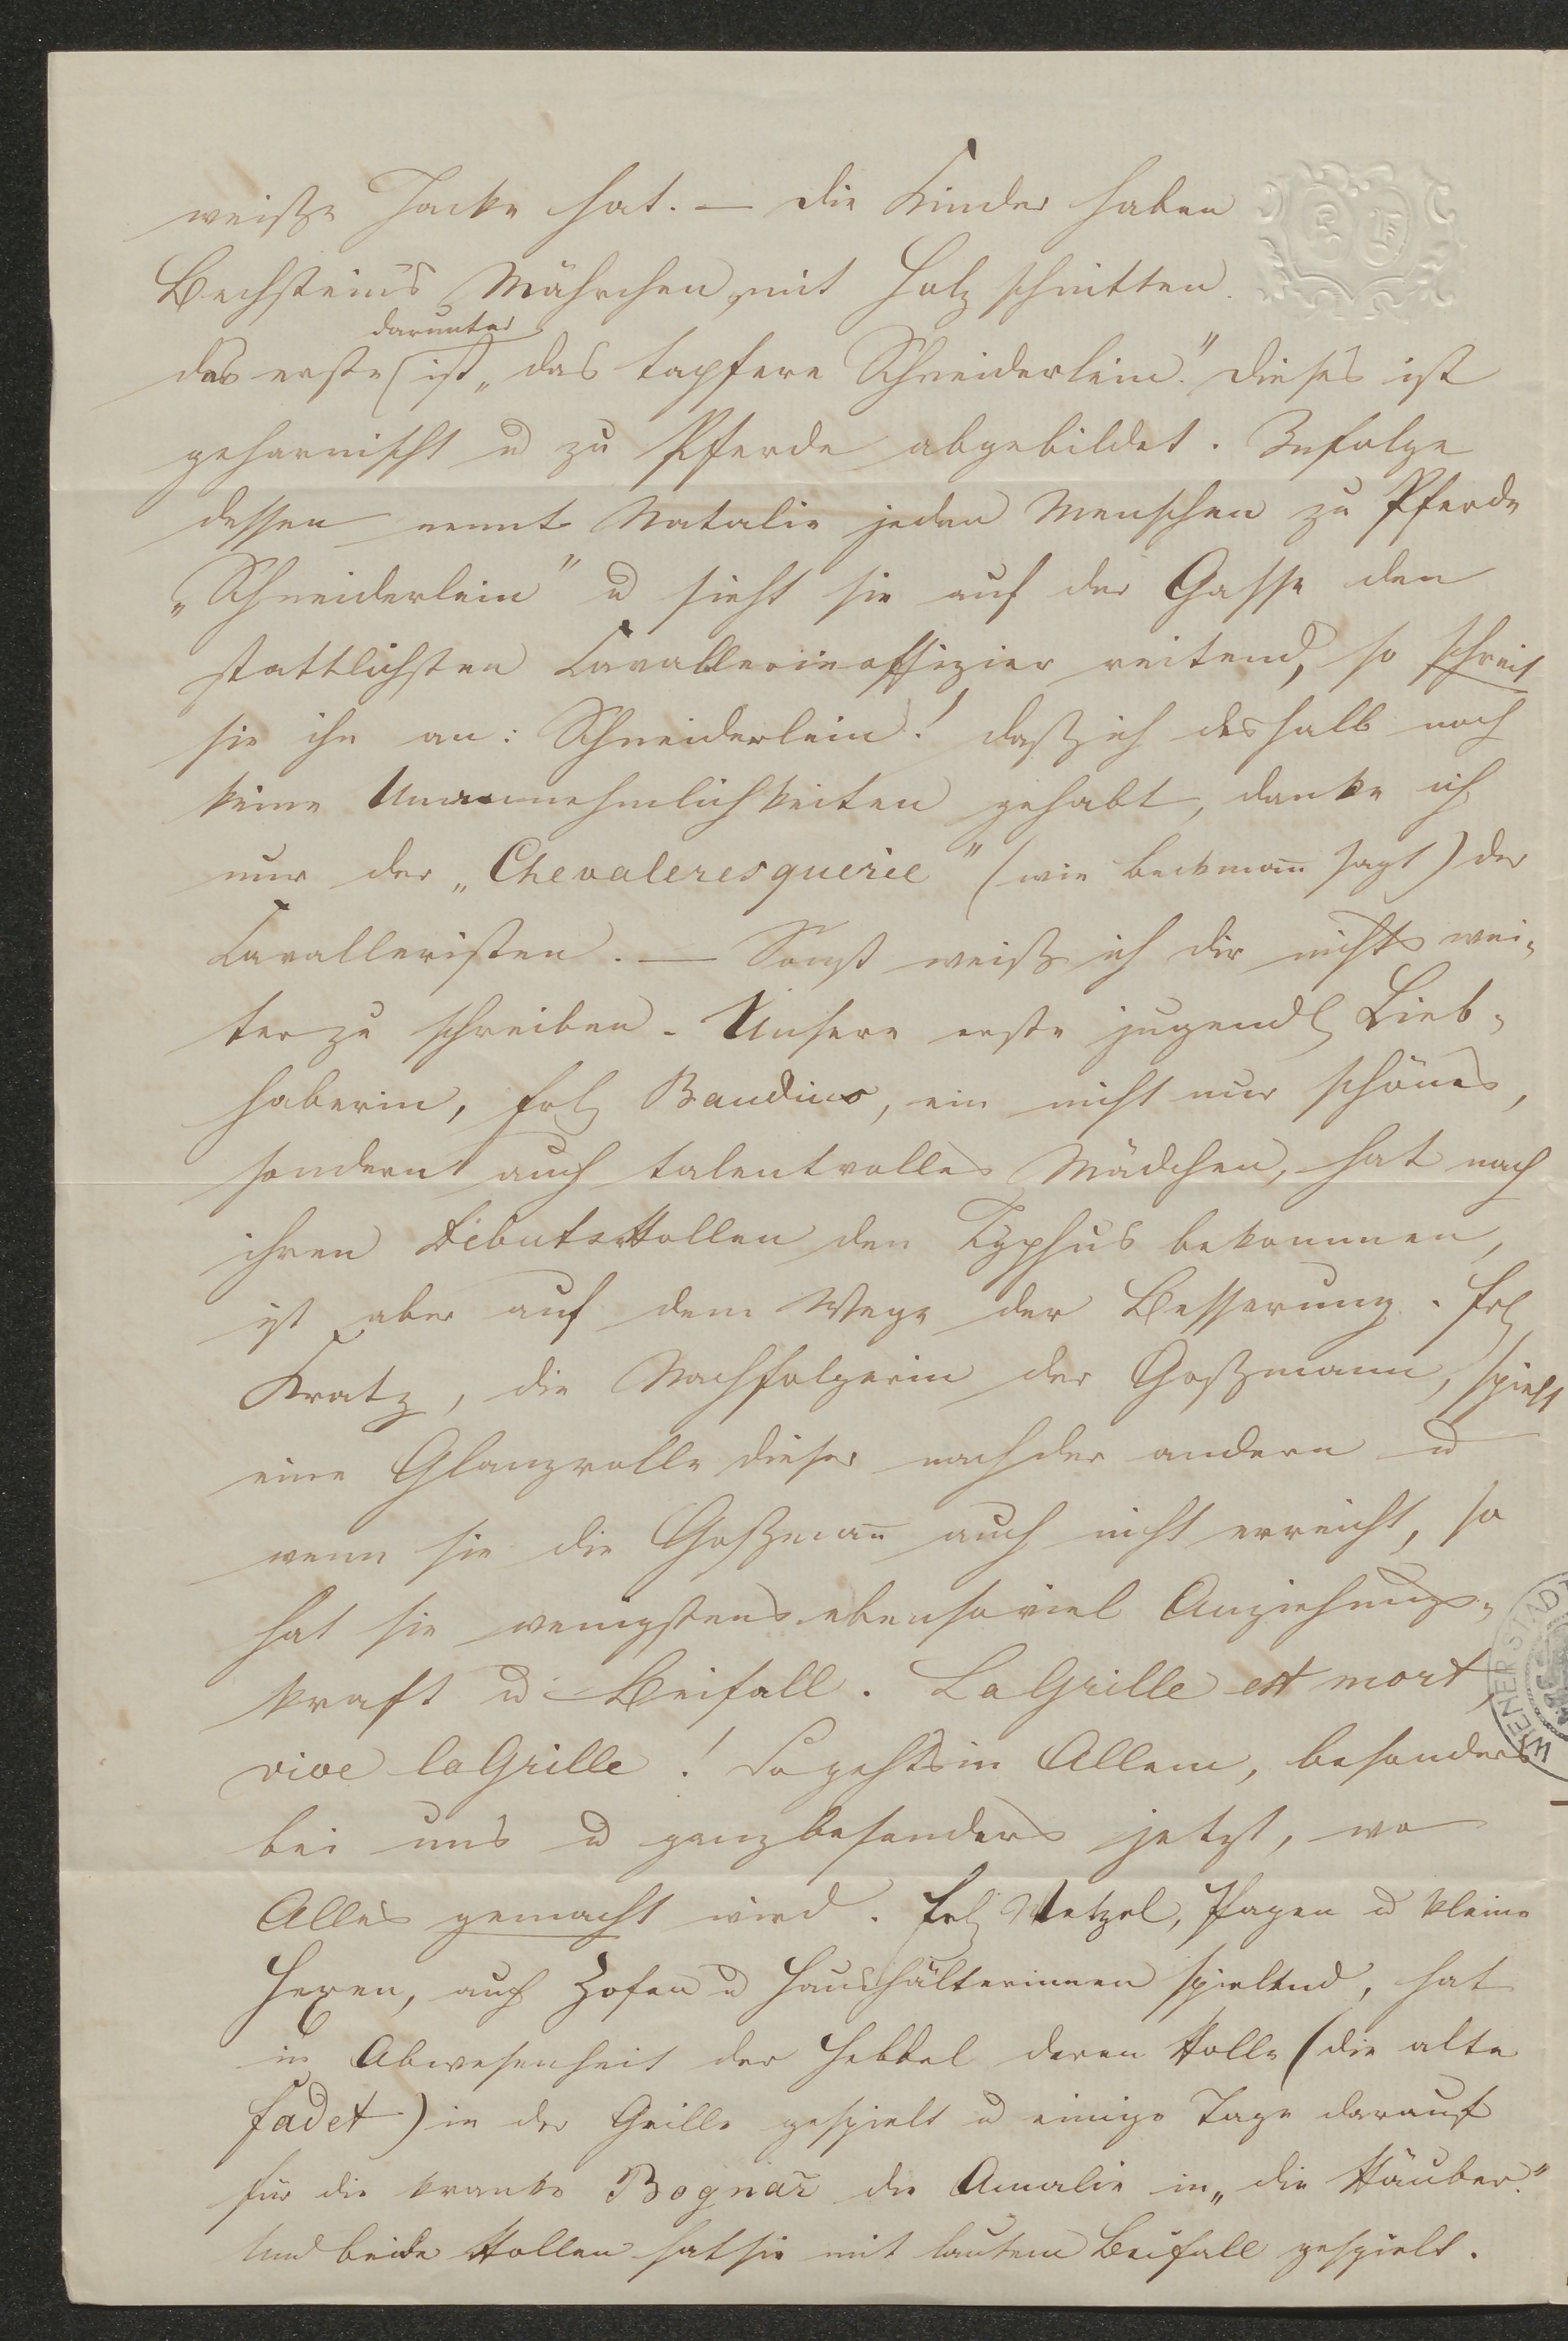 weiße Jacke hat. — Die Kinder haben
Bechstein's Mährchen mit Holzschnitten.
darunter
das erste ist „das tapfere Schneiderlein." Dieses ist
geharnischt u zu Pferde abgebildet. Zufolge
dessen nennt Natalie jeden Menschen zu Pferde
„Schneiderlein" u sieht sie auf der Gasse den
stattlichsten Cavallerieoffizier reitend, so schreit
sie ihn an: Schneiderlein! Daß ich deshalb noch
keine Unannehmlichkeiten gehabt, danke ich
nur der „Chevaleresquerie" (wie Beckmañ sagt) der
Cavalleristen. — Sonst weiß ich dir nichts wei-
ter zu schreiben. Unsere erste jugendl Lieb-
haberin, Frl Baudius, ein nicht nur schönes,
sondern auch talentvolles Mädchen, hat nach
ihren Debutsrollen den Typhus bekommen,
ist aber auf dem Wege der Besserung. Frl
Kratz, die Nachfolgerin der Goßmann, spielt
eine Glanzrolle dieser nach der andern u
wenn sie die Goßmañ auch nicht erreicht, so
hat sie wenigstens ebensoviel Anziehungs-
kraft u Beifall. La Grille est mort,
vive la Grille! So geht's in Allem, besonders
bei uns u ganz besonders jetzt, wo
Alles gemacht wird. Frl Wetzel, Pagen u kleine
Hexen, auch Zofen u Haushälterinnen spielend, hat
in Abwesenheit der Hebbel deren Rolle (die alte
Fadet) in der Grille gespielt u einige Tage darauf
für die kranke Bognar die Amalie in „die Räuber."
Und beide Rollen hat sie mit lautem Beifall gespielt.